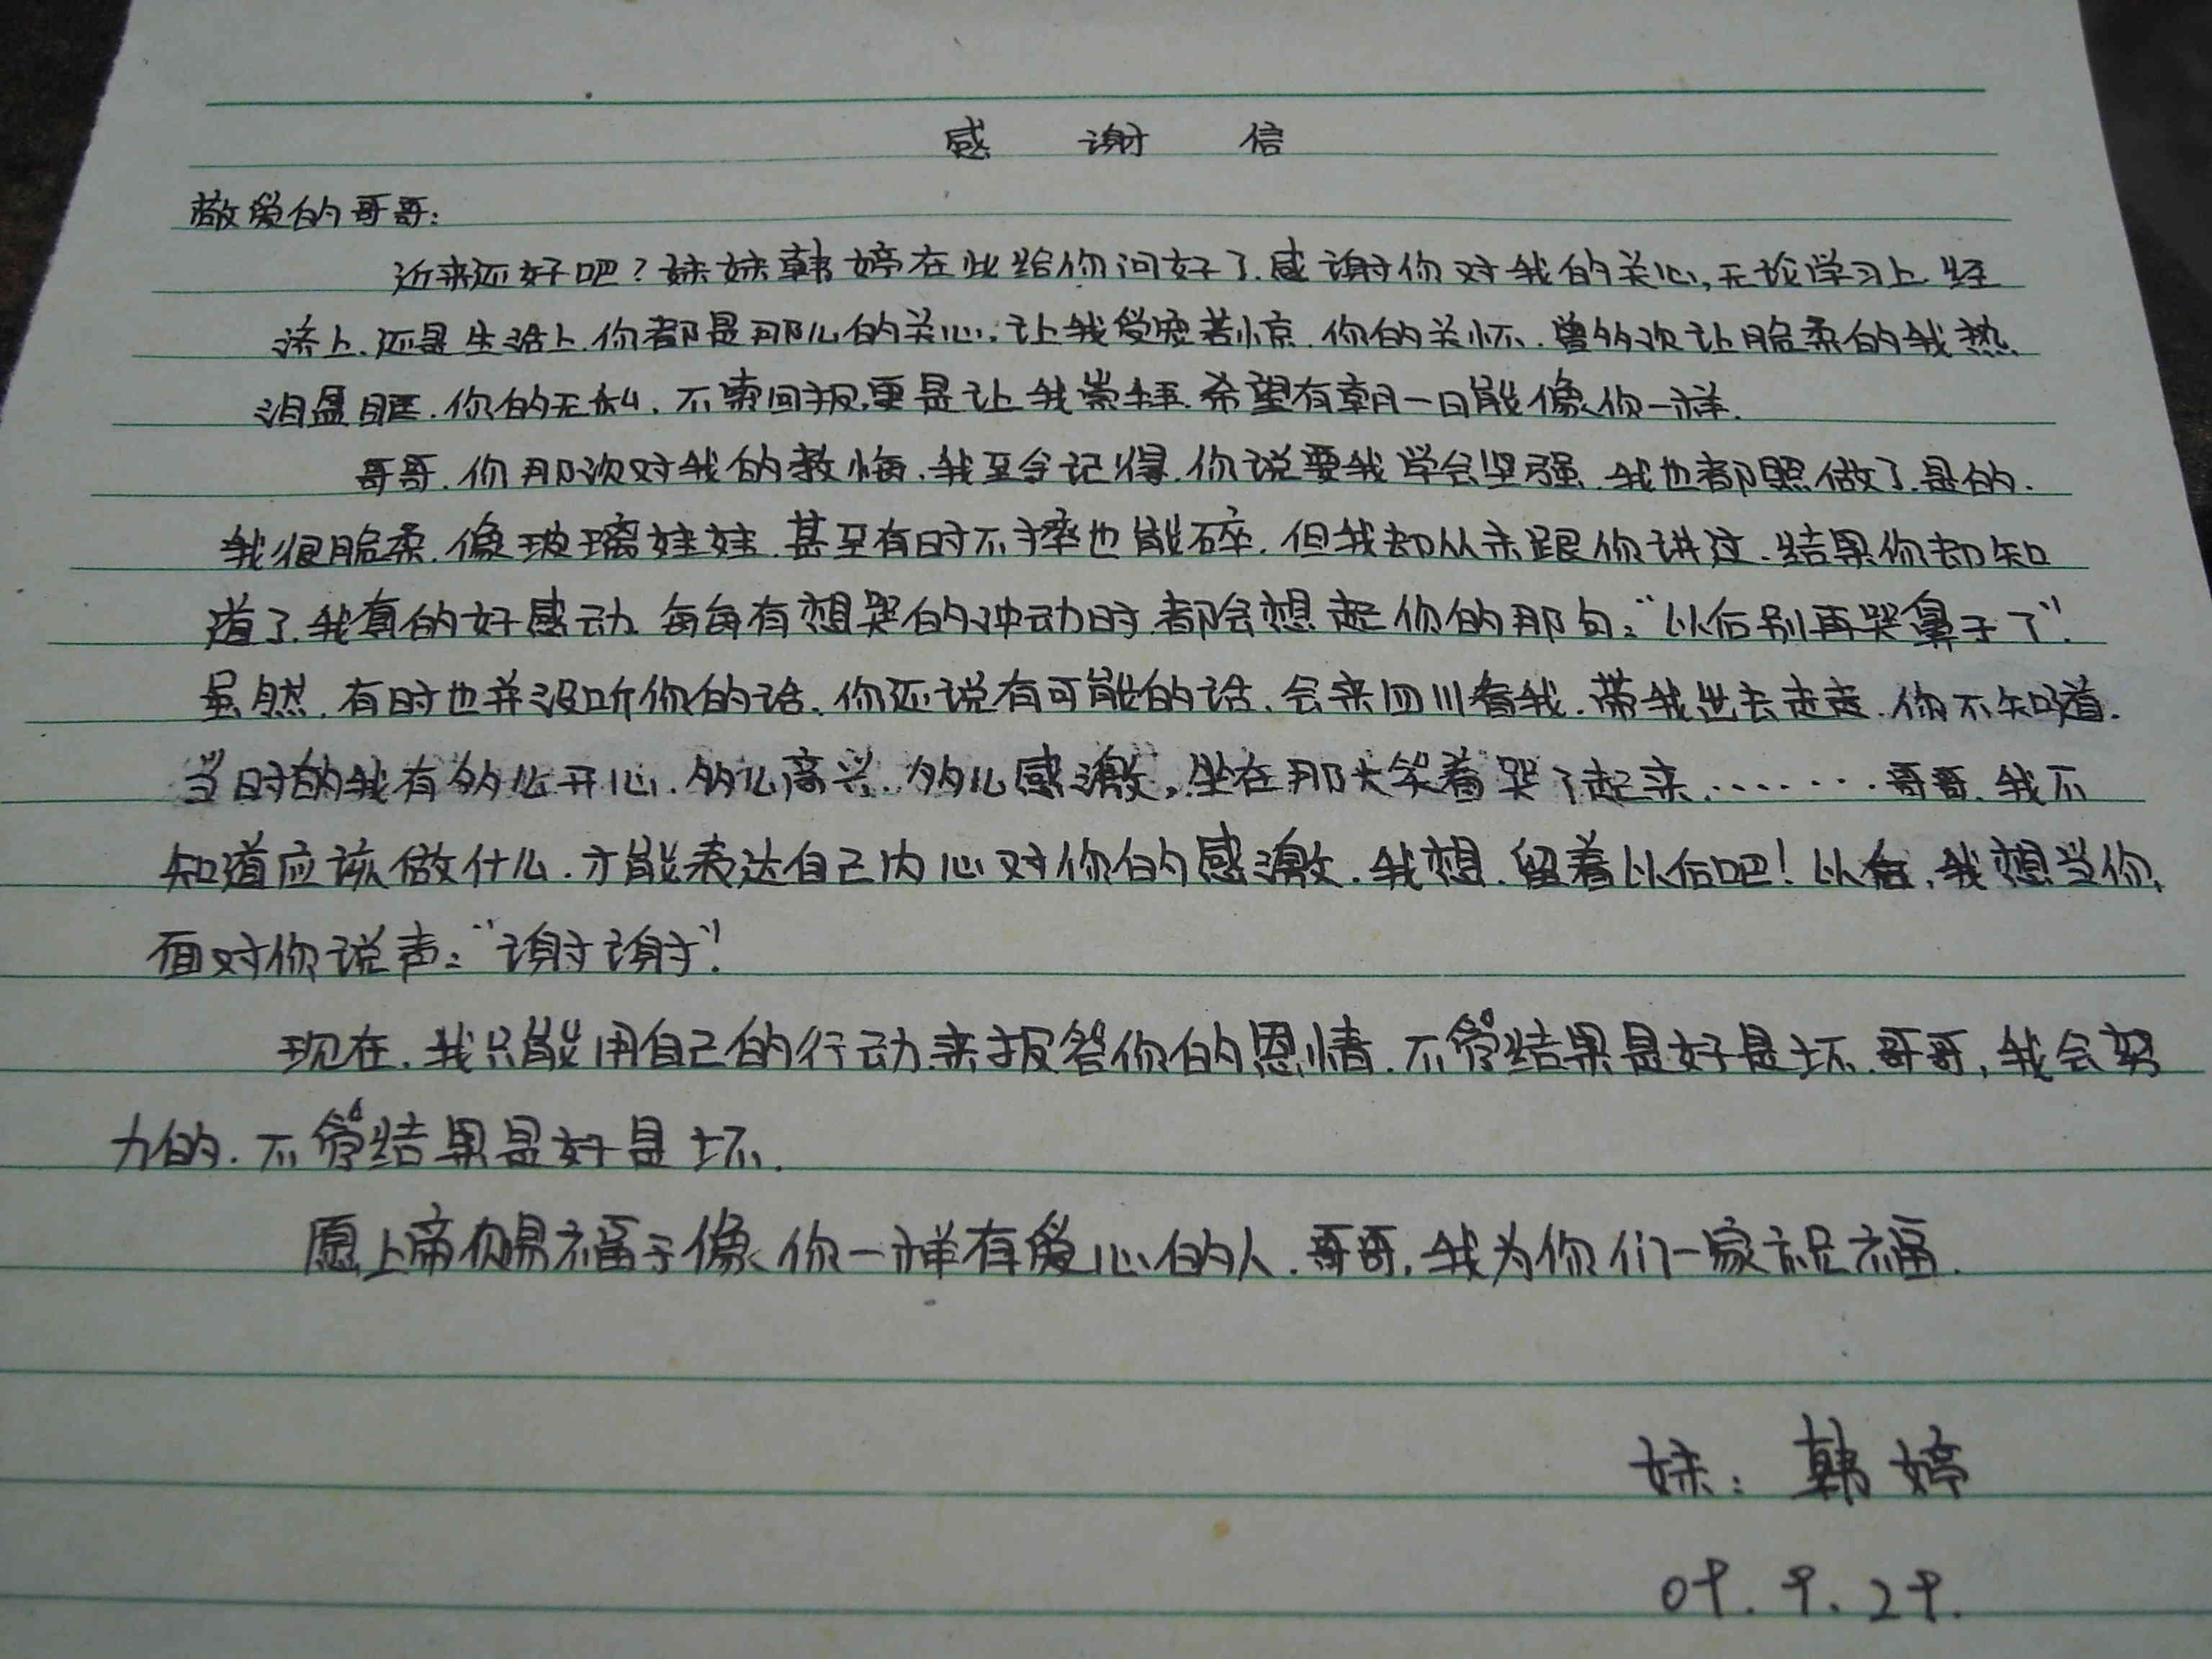 感 谢 信
敬爱的哥哥:
近来还好吧?妹妹韩婷在此给你问好了.感谢你对我的关心,无论学习上.经
济上.还是生活上.你都是那么的关心.让我受宠若惊.你的关怀.曾多次让脆柔的我热
泪盈眶.你的无私.不索回报,更是让我崇拜.希望有朝一日能像你一样.
哥哥.你那次对我的教悔.我至今记得.你说要我学会坚强.我也都照做了.是的.
我很脆柔.像玻璃娃娃.甚至有时不摔也能碎.但我却从未跟你讲过.结果你却知
道了.我真的好感动.每每有想哭的冲动时.都会想起你的那句:“以后别再哭鼻子了”.
虽然.有时也并没听你的话.你还说有可能的话.会来四川看我.带我出去走走.你不知道.
当时的我有多么开心.多么高兴.多么感激,坐在那大笑着哭了起来.......哥哥.我不
知道应该做什么.才能表达自己内心对你的感激.我想.留着以后吧!以后,我想当你
面对你说声:“谢谢”!
现在.我只能用自己的行动来报答你的恩情.不管结果是好是坏.哥哥,我会努
力的.不管结果是好是坏.
愿上帝赐福于像你一样有爱心的人.哥哥,我为你们一家祝福.
妹:韩婷
09.9.29.